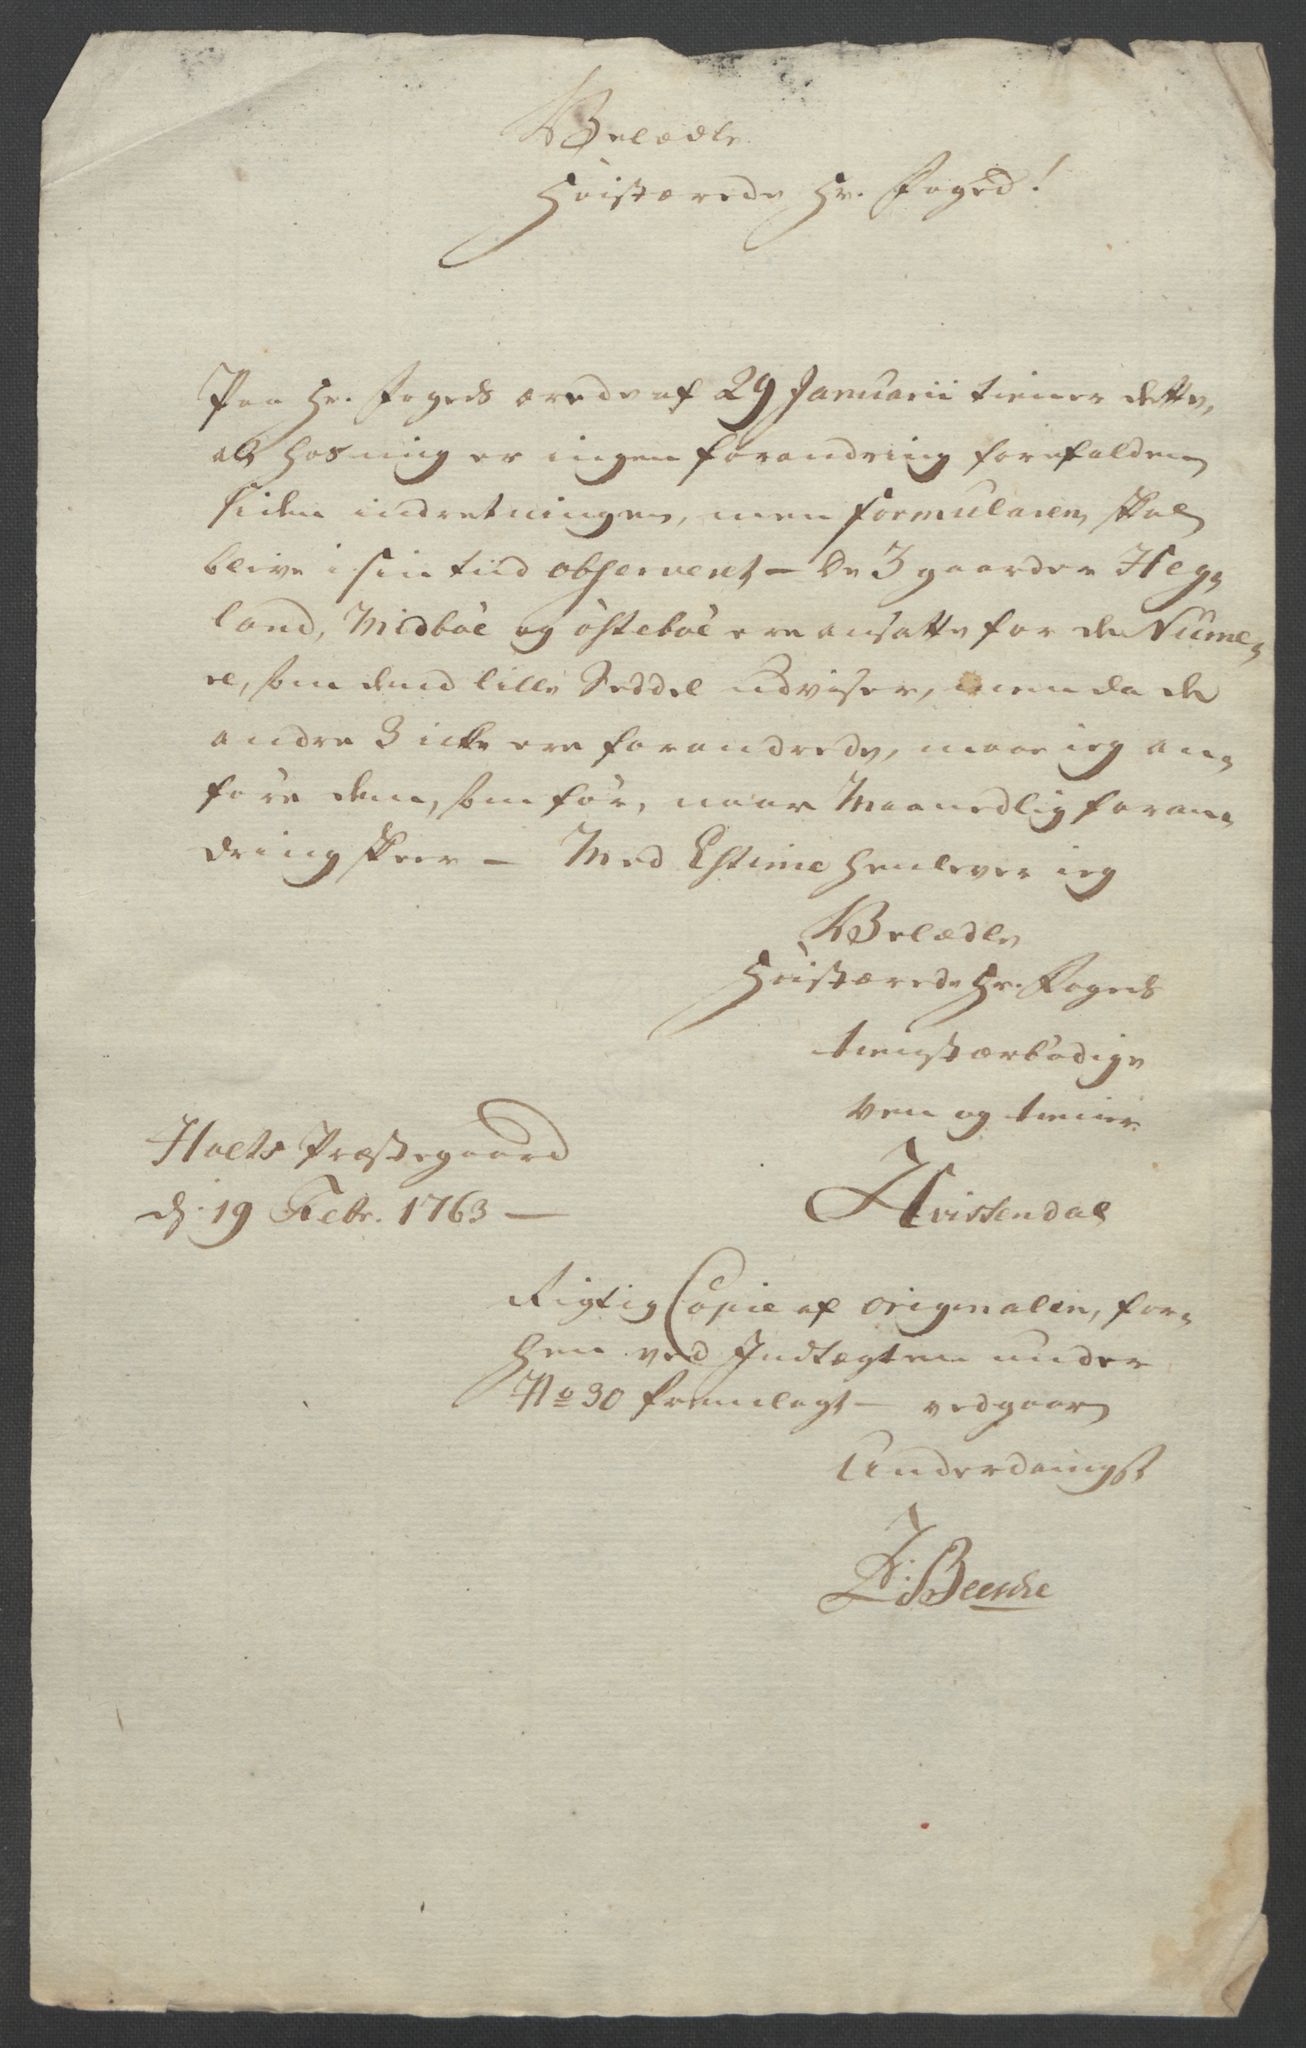 Velædle
Høistærede Hr. Foged!
Paa Hr. Fogeds ærede af 29 Januarii tiener dette,
at hos mig er ingen forandring forefalden
siden indretningen, men formularen skal
blive i sin tiid observert - De 3 gaarder Heg=
land, Midbøe og Østebøe ere ansatte for de Nume=
re, som dend lille Seddel udviser, men da de
andre 3 icke ere forandrede, maae ieg an=
føre dem, som før, naar Maanedlig foran=
dring skeer - Med Estime henlever ieg
Velædle
Høistærede Hr. Fogeds
tienstærbødige
Ven og tiener
Holts Præstegaard
d: 19 Febr. 1763 -
Hvistendal
Rigtig Copie af originalen, for=
hen ved Indtægten under
No 30 fremlagt - vedgaar
Underdanigst